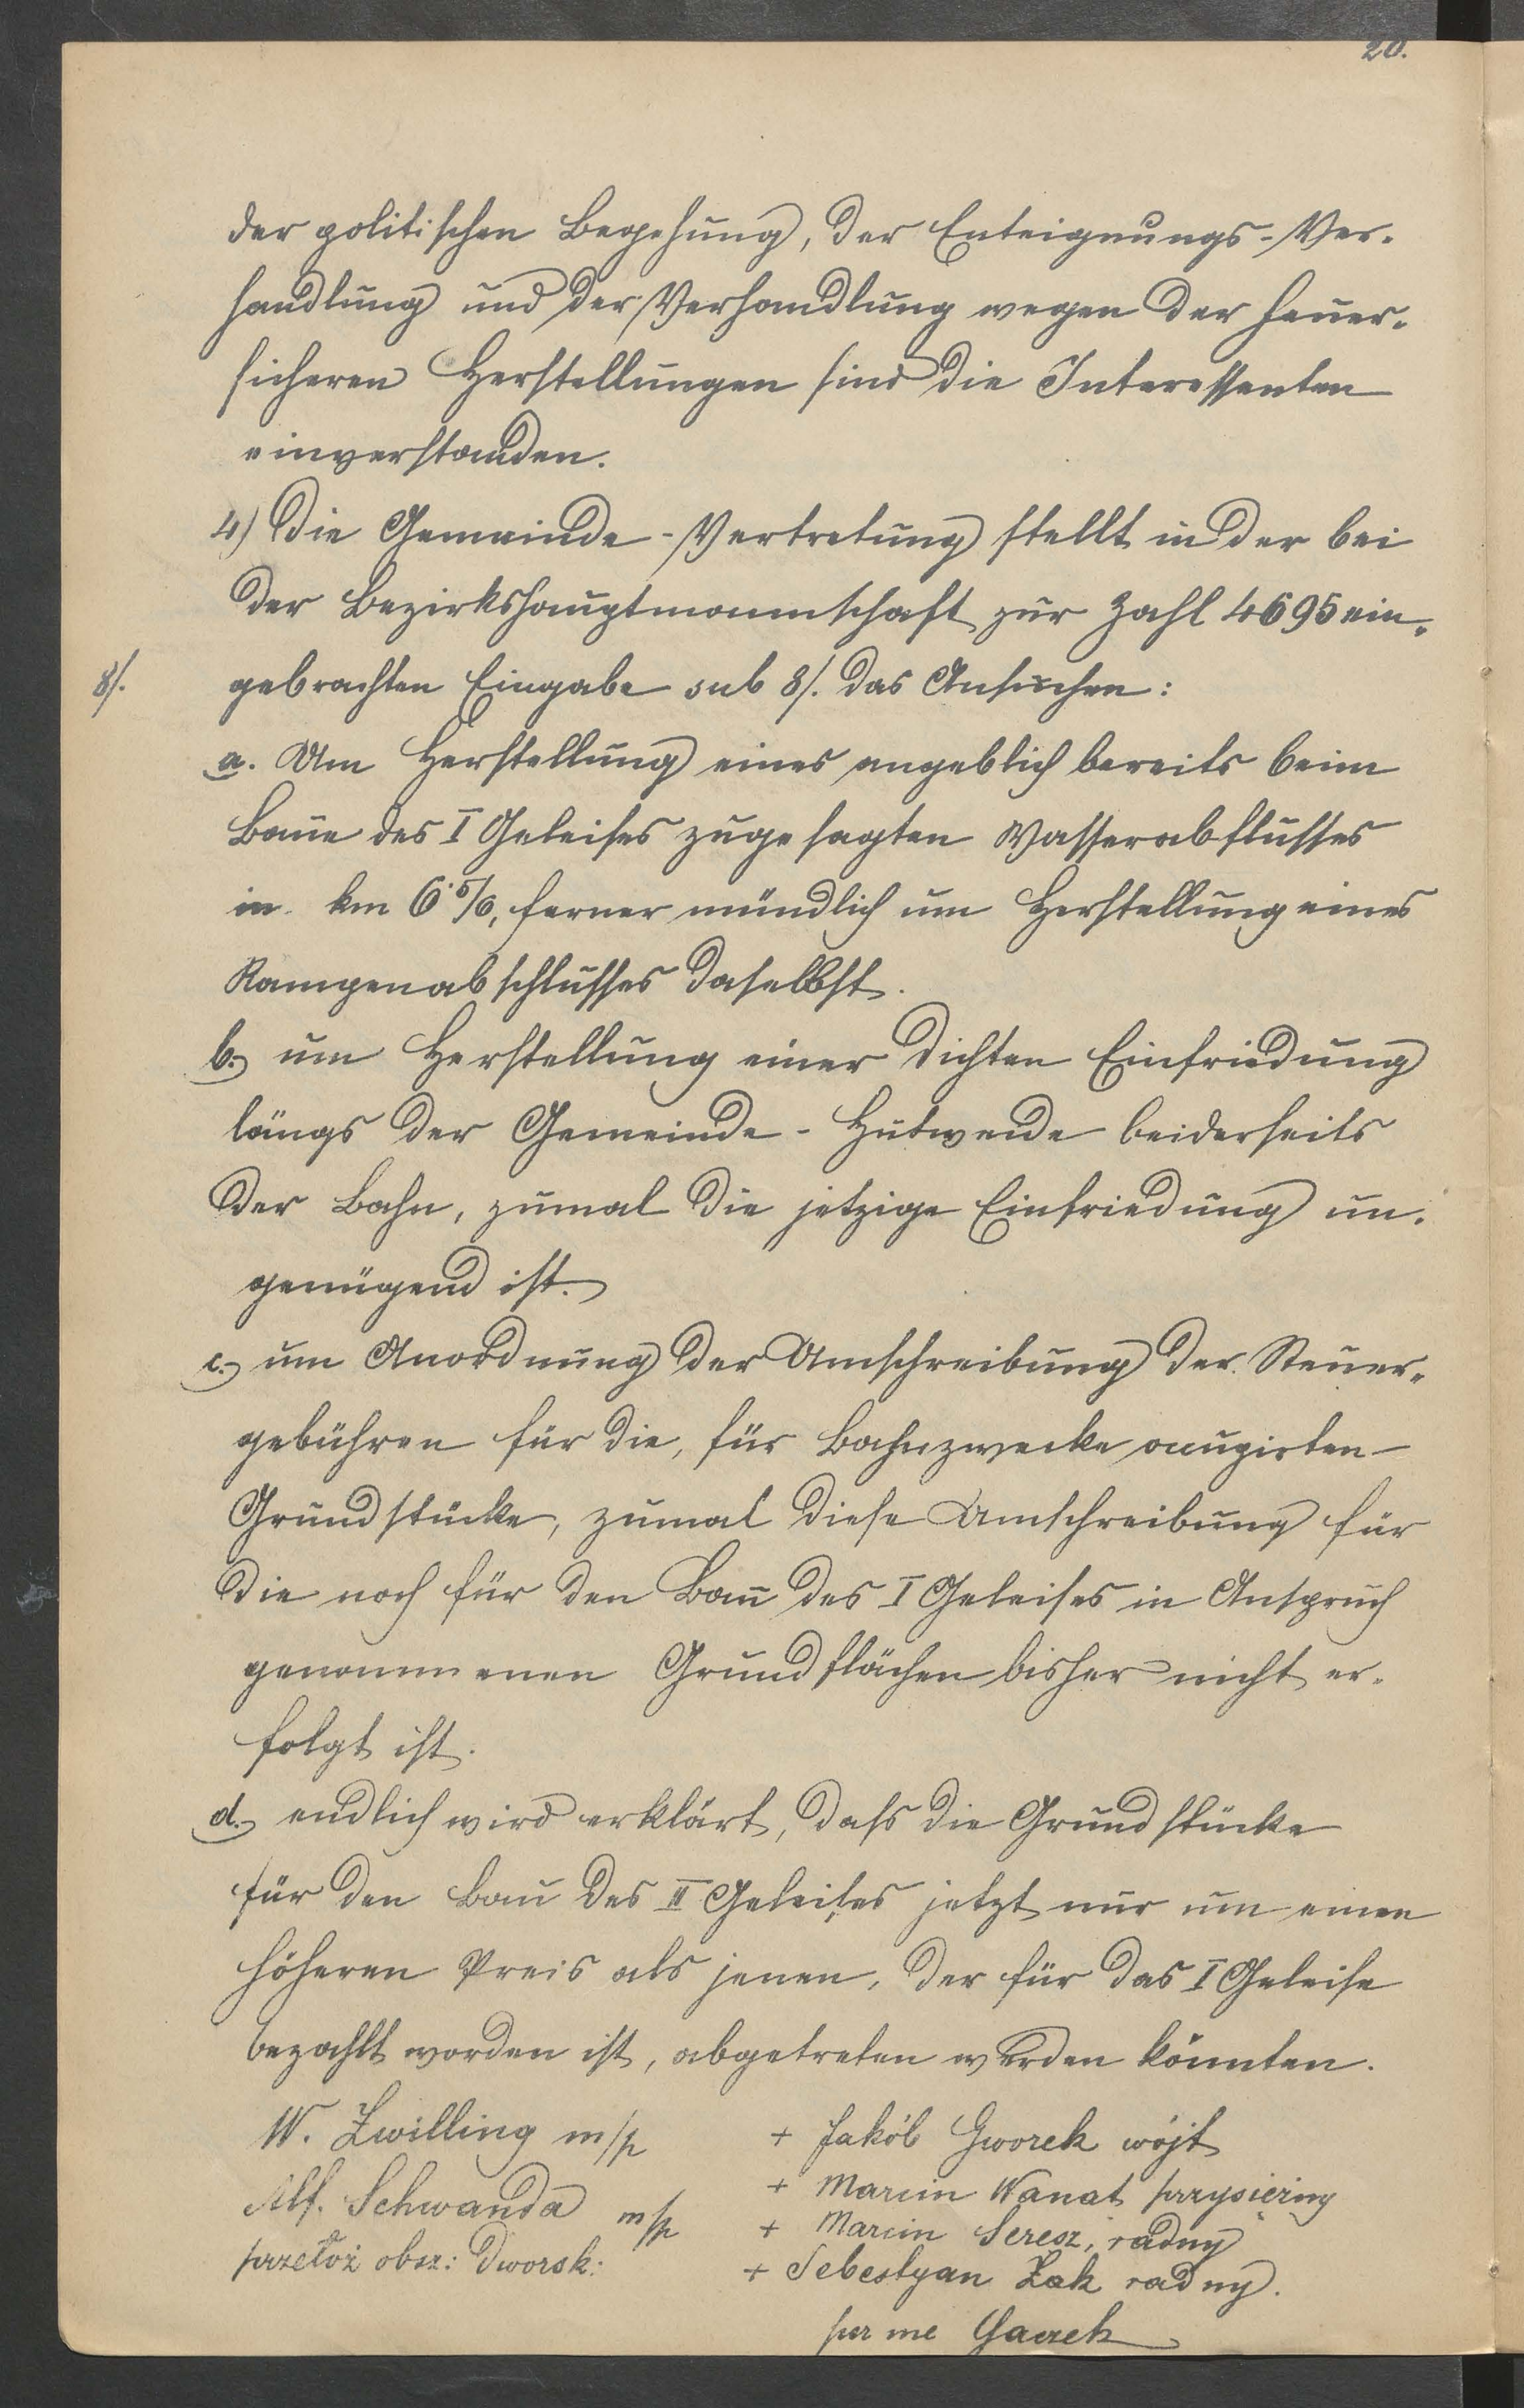 20.
der politischen Begehung, der Enteignungs-Ver-
handlung und der Verhandlung wegen der feuer-
sicheren Herstellungen sind die Interessenten
einverstanden.
4) Die Gemeinde-Vertretung stellt in der bei
der Bezirkshauptmannschaft zur Zahl 4695 ein-
8/. gebrachten Eingabe sub 8/. das Ansuchen:
a. Um Herstellung eines angeblich bereits beim
Baue des I Geleises zugesagten Wasserabflusses
in km , ferner mündlich um Herstellung eines
Rampenabschlusses daselbst.
b.) um Herstellung einer dichten Einfriedung
längs der Gemeinde-Hutweide beiderseits
der Bahn, zumal die jetzige Einfriedung un-
genügend ist.
c.) um Anordnung der Umschreibung der Steuer-
gebühren für die, für Bahnzwecke occupirten
Grundstücke, zumal diese Umschreibung für
die noch für den Bau des I Geleises in Anspruch
genommenen Grundflächen bisher nicht er-
folgt ist.
d.) endlich wird erklärt, dass die Grundstücke
für den Bau des II Geleises jetzt nur um einen
höheren Preis als jenen, der für das I Geleise
bezahlt worden ist, abgetreten werden könnten.
W. Zwilling m/p
+ Jakób Gworek wójt
Alf. Schwanda m/p
+ Marcin Wanat przysiężny
+ Marcin Seresz, radny
przełoż obsz: dworsk:
+ Sebestyan Żak radny.
per me